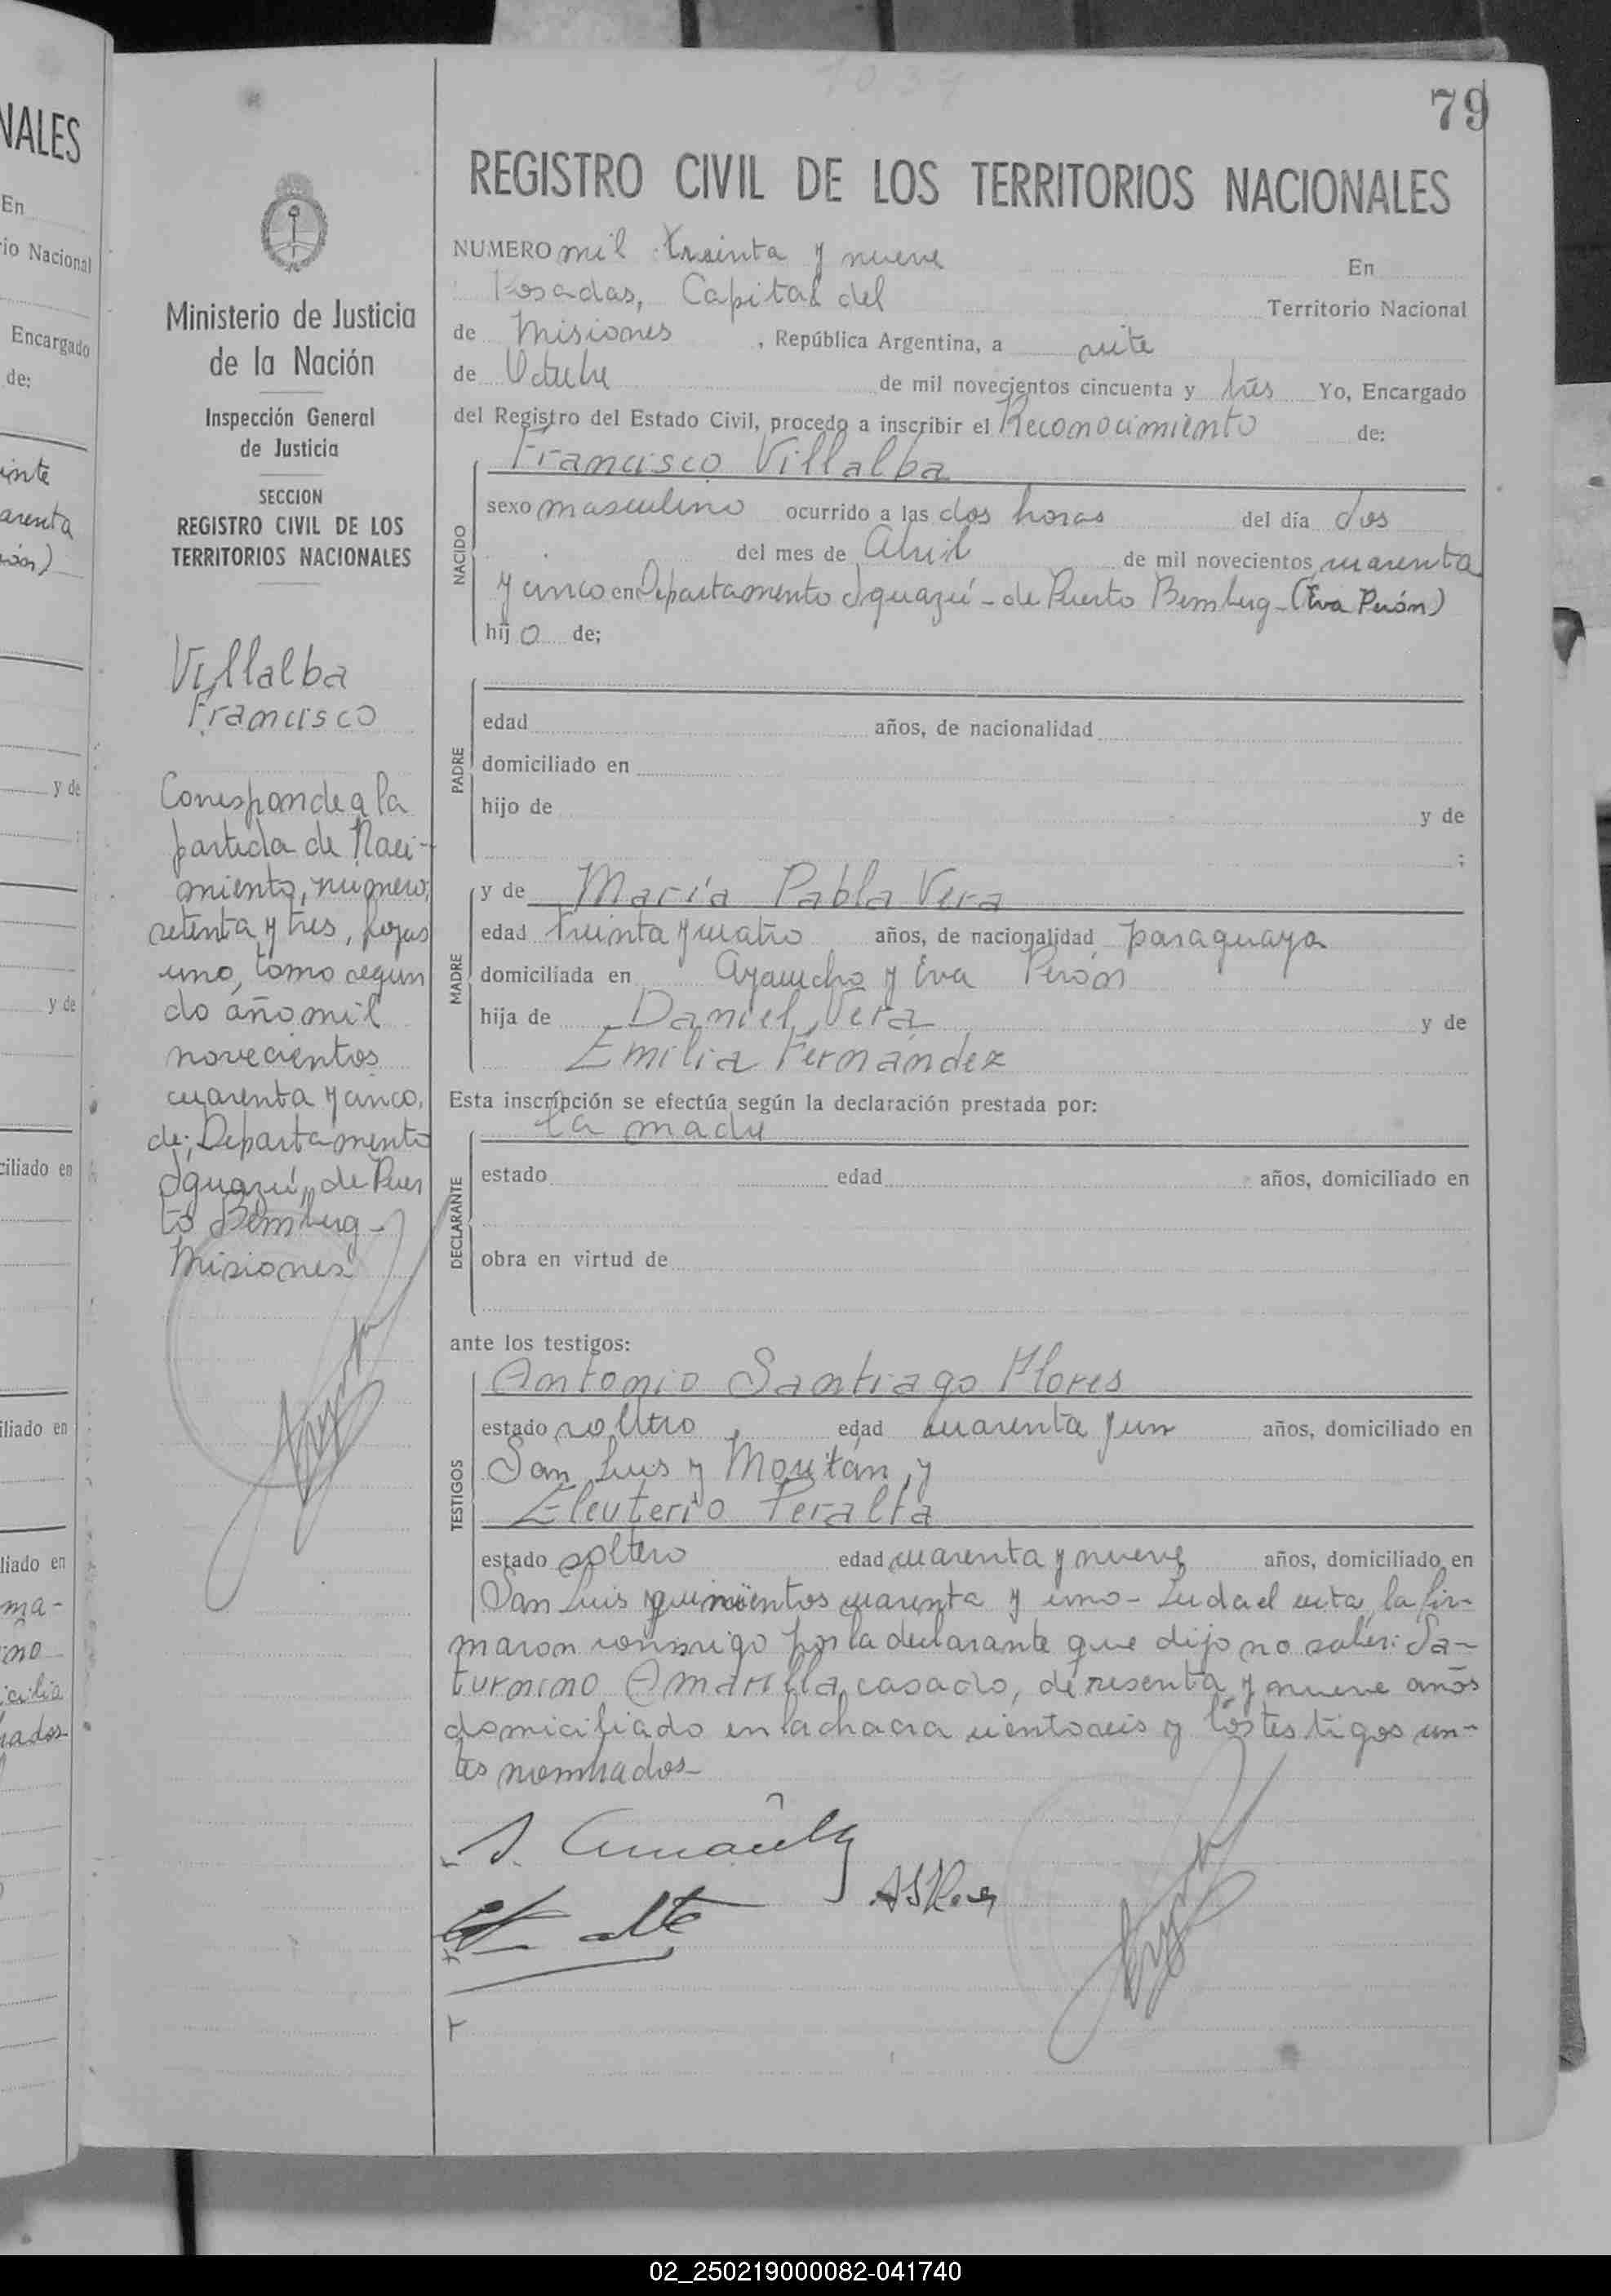 NALES
En
rio Nacional
Encargado
de:
inte
arenta
y de
y de
ciliado en
iliado en
liado en
ma-
no
icilia
nados
Ministerio de Justicia
de la Nación
Inspección General
de Justicia
SECCION
REGISTRO CIVIL DE LOS
TERRITORIOS NACIONALES
Villalba
Francisco
Corresponde a la
partida de Naci-
miento, número,
setenta y tres, fojas
uno, tomo segun
do año mil
novecientos
cuarenta y cinco.
de; Departamento
Iguazú, de Puer
to Bemberg-
Misiones
79
REGISTRO CIVIL DE LOS TERRITORIOS NACIONALES
NUMERO mil treinta y nueve En
Posadas, Capital del Territorio Nacional
de Misiones , República Argentina, a siete
de Octubre de mil novecientos cincuenta y trés Yo, Encargado
del Registro del Estado Civil, procedo a inscribir el Reconocimiento de:
NACIDO
Francisco Villalba
sexo masculino ocurrido a las dos horas del día dos
del mes de Abril de mil novecientos cuarenta
y cinco en Departamento Iguazú - de Puerto Bemberg - (Eva Perón)
hijo de;
PADRE
edad años, de nacionalidad
domiciliado en
hijo de y de
;
MADRE
y de María Pabla Vera
edad treinta y cuatro años, de nacionalidad paraguaya
domiciliada en Ayacucho y Eva Perón
hija de Daniel Vera y de
Emilia Fernández
Esta inscripción se efectúa según la declaración prestada por:
DECLARANTE
la madre
estado edad años, domiciliado en
obra en virtud de
ante los testigos:
TESTIGOS
Antonio Santiago Flores
estado soltero edad cuarenta y un años, domiciliado en
San Luis y y
Eleuterio Peralta
estado soltero edad cuarenta y nueve años, domiciliado en
San Luis quinientos cuarenta y uno - Leída el acta, la fir-
maron conmigo por la declarante que dijo no saber: Sa-
turnino Amarilla, casado, de sesenta y nueve años
domiciliado en la chacra ciento seis y los testigos an-
tes nombrados-
02_250219000082-041740